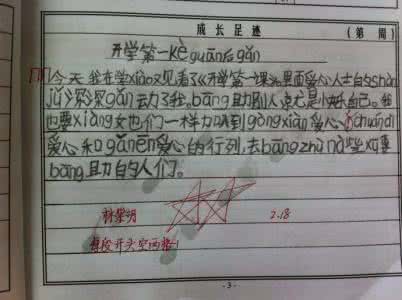 成长足迹 （第 周）
开学第一kè guān后gǎn
今天我在学xiào又见看了《开学第一课》。里面爱心人士白的shàn
jǔ深深gǎn动了我。bāng助别人就是快乐自己。我
也要xiàng他们一样加入到gòng xiàn爱心、chuándì
爱心和gǎnēn爱心的行列，去bāngzhù nà些xū要
bāng助的人们。
2.18
每段开头空两格！
-3-